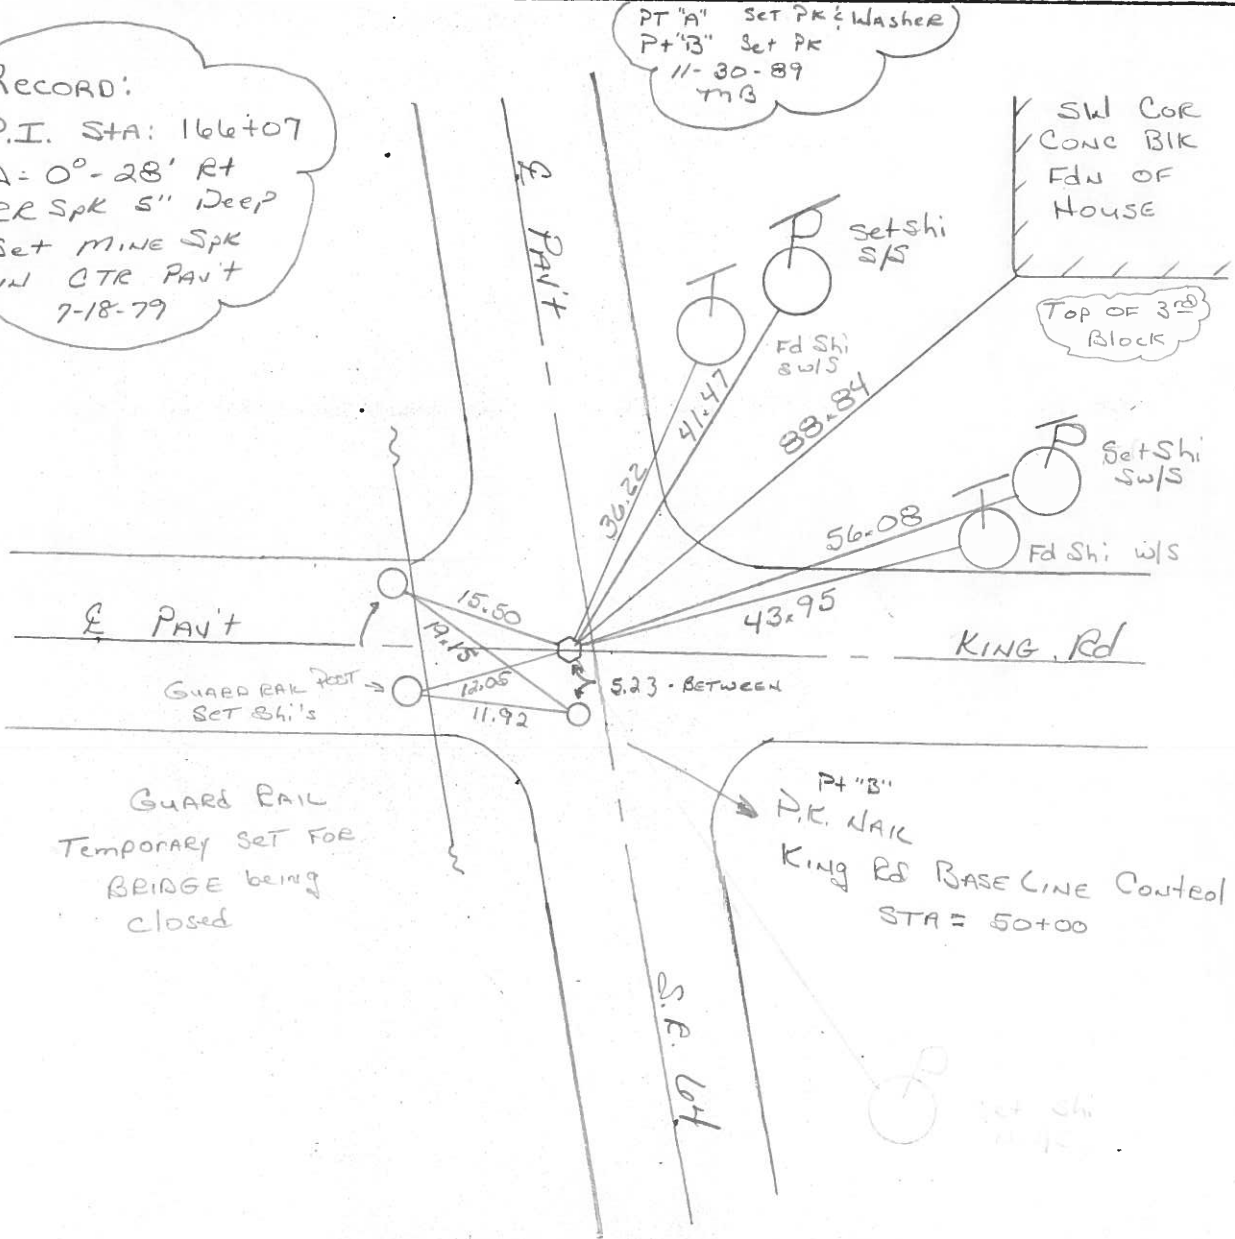 Record:
P.I. StA: 166+07
Δ= 0°-28' Rt
RR Spk 5" Deep
Set MINE Spk
IN CTR PAv't
7-18-79
PT "A" Set PK & Washer
Pt "B" Set PK
11-30-89
TMB
SW COR
CONC Blk
FdN OF
House
TOP OF 3rd
Block
℄ PAv't
Set Shi
S/S
Fd Shi
SW/S
36.22
41.47
88.84
Set Shi
SW/S
56.08
Fd Shi W/S
43.95
℄ PAv't
15.50
19.15
KING Rd
Guard RAIL Post
SET Shi's
12.05
11.92
5.23 - BETWEEN
GUARd RAIL
Temporary Set FOR
BRIDGE being
Closed
Pt "B"
P.K. NAIL
King Rd BASE LINE Control
STA = 50+00
S.R. 64
Set Shi